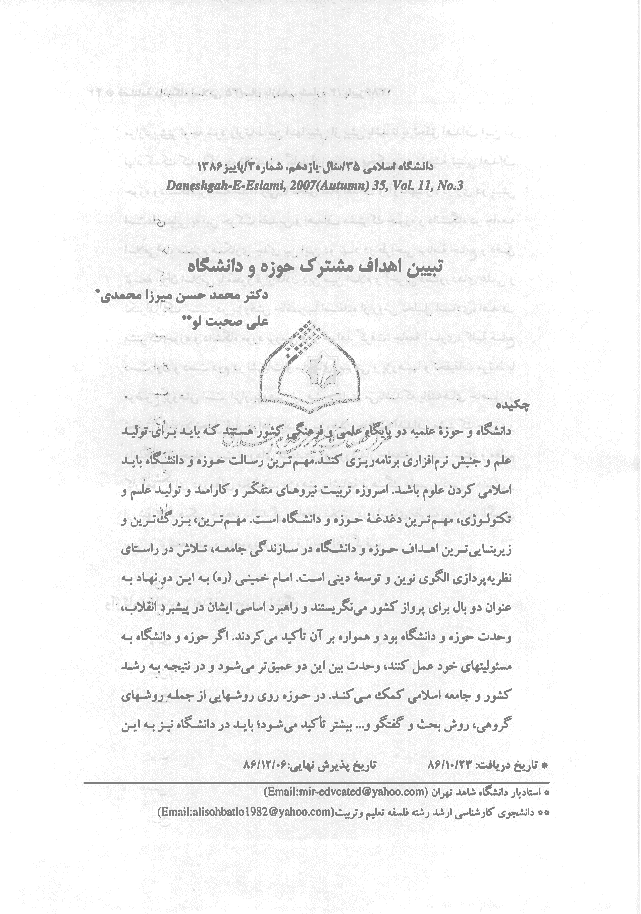 دانشگاه اسلامی ۳۵/سال یازدهم، شماره۳/پاییز ۱۳۸۶
Daneshgah-E-Eslami, 2007(Autumn) 35, Vol. 11, No.3
تبیین اهداف مشترک حوزه و دانشگاه
دکتر محمد حسن میرزا محمدی*
علی صحبت لو**
چکیده
دانشگاه و حوزهٔ علمیه دو پایگاه علمی و فرهنگی کشور هستند که باید برای تولید
علم و جنبش نرم‌افزاری برنامه‌ریزی کنند. مهم‌ترین رسالت حوزه و دانشگاه باید
اسلامی کردن علوم باشد. امروزه تربیت نیروهای متفکر و کارامد و تولید علم و
تکنولوژی، مهم‌ترین دغدغهٔ حوزه و دانشگاه است. مهم‌ترین، بزرگ‌ترین و
زیربنایی‌ترین اهداف حوزه و دانشگاه در سازندگی جامعه، تلاش در راستای
نظریه‌پردازی الگوی نوین و توسعهٔ دینی است. امام خمینی (ره) به این دو نهاد به
عنوان دو بال برای پرواز کشور می‌نگریستند و راهبرد اساسی ایشان در پیشبرد انقلاب،
وحدت حوزه و دانشگاه بود و همواره بر آن تأکید می‌کردند. اگر حوزه و دانشگاه به
مسئولیتهای خود عمل کنند، وحدت بین این دو عمیق‌تر می‌شود و در نتیجه به رشد
کشور و جامعه اسلامی کمک می‌کند. در حوزه روی روشهایی از جمله روشهای
گروهی، روش بحث و گفتگو و... بیشتر تأکید می‌شود؛ باید در دانشگاه نیز به این
* تاریخ دریافت: ۸۶/۱۰/۲۳ تاریخ پذیرش نهایی: ۸۶/۱۲/۰۶
* استادیار دانشگاه شاهد تهران (Email:mir-edvcated@yahoo.com)
** دانشجوی کارشناسی ارشد رشته فلسفه تعلیم و تربیت(Email:alisohbatlo1982@yahoo.com)